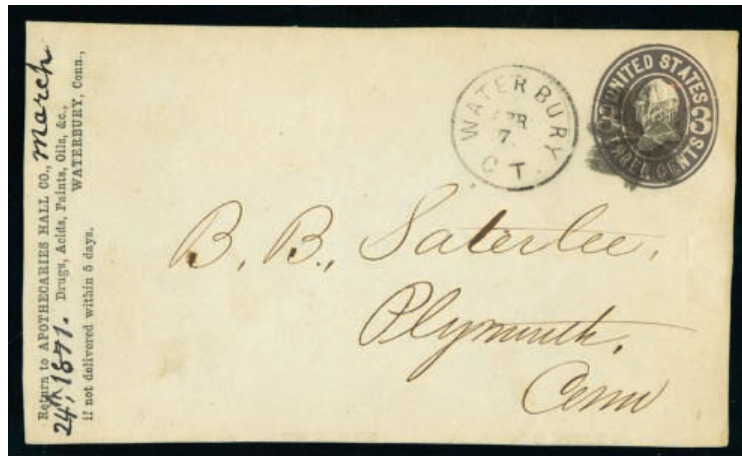 Return to APOTHECARIES HALL CO., March
24th, 1871. Drugs, Acids, Paints, Oils, &c.,
WATERBURY, Conn.,
if not delivered within 5 days.
WATERBURY
APR
7
CT
UNITED STATES
3
THREE CENTS
3
B. B. Saterlee,
Plymouth,
Conn